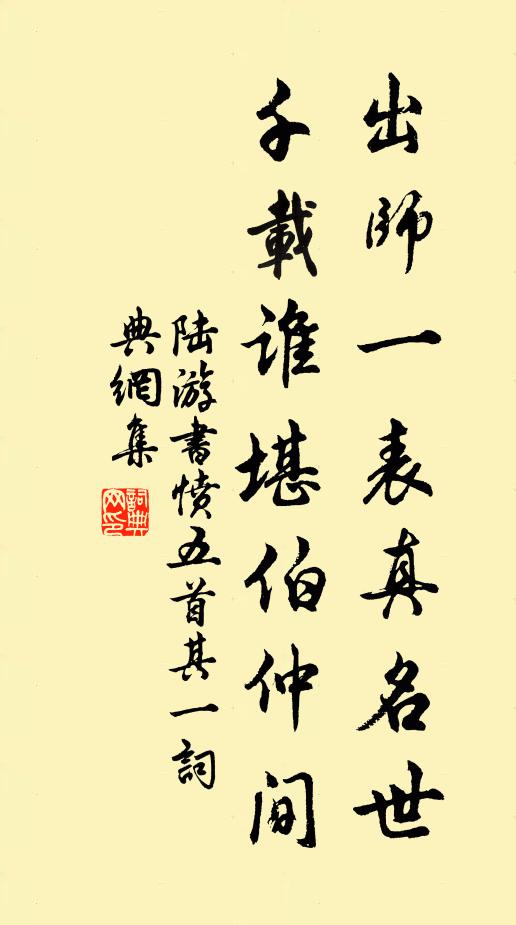 出師一表真名世
千載誰堪伯仲间
陆游書憤五首其一詞
典網集
詞典
网印